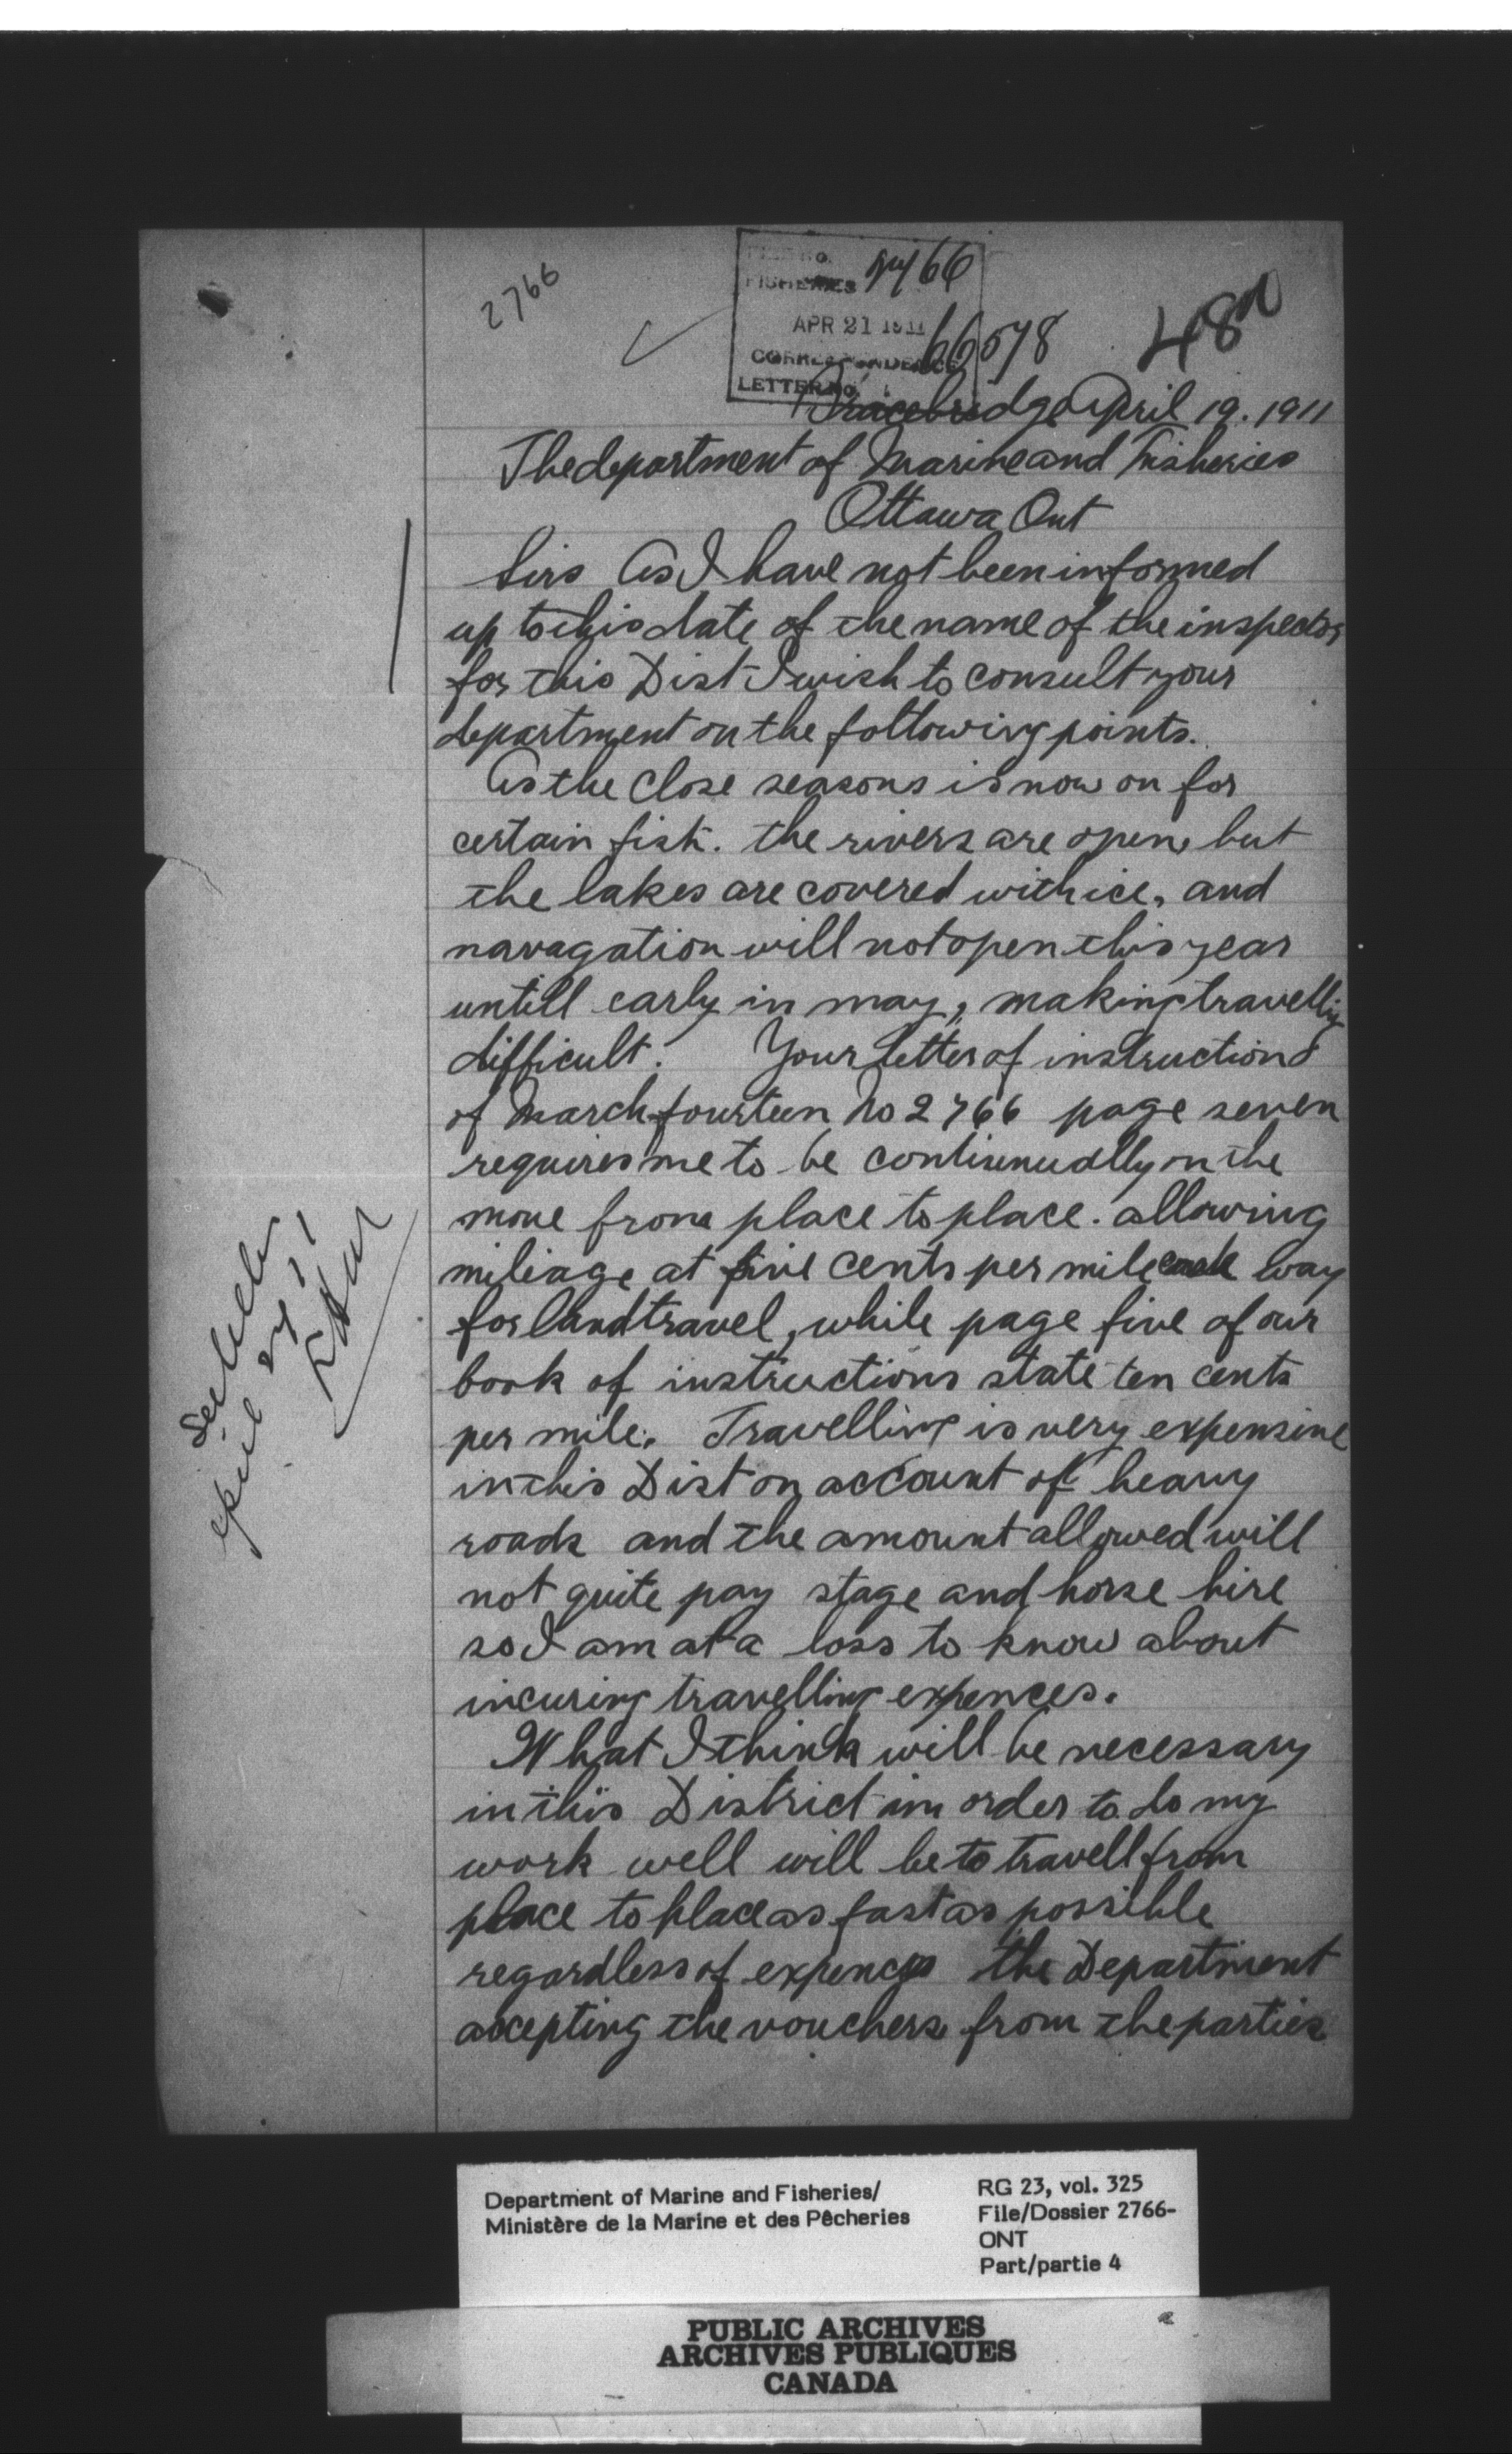 2766
FILE No.
FISHERIES 2766
APR 21 1911
CORRESPONDENCE 66578
LETTER No.
48
Bracebridge April 19. 1911
The department of Marine and Fisheries
Ottawa Ont
Sirs As I have not been informed
up to this date of the name of the inspector
for this Dist I wish to consult your
department on the following points.
As the close seasons is now on for
certain fish. the rivers are open, but
the lakes are covered with ice, and
navagation will not open this year
untill early in may, making travelling
difficult. Your letter of instructions
of March fourteen No 2766 page seven
requires me to be continuadlly on the
move from place to place. allowing
mileage at five cents per mile each way
for land travel, while page five of our
book of instructions state ten cents
per mile. Travelling is very expensive
in this Dist on account of heavy
roads and the amount allowed will
not quite pay stage and horse hire
so I am at a loss to know about
incuring travelling expences.
What I think will be necessary
in this District in order to do my
work well will be to travell from
place to place as fast as possible
regardless of expences the Department
accepting the vouchers from the parties
See letter
Department of Marine and Fisheries/
Ministère de la Marine et des Pêcheries
RG 23, vol. 325
File/Dossier 2766-
ONT
Part/partie 4
PUBLIC ARCHIVES
ARCHIVES PUBLIQUES
CANADA